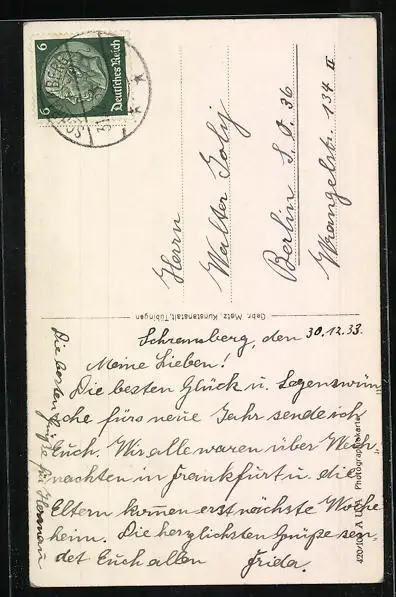 6 Deutsches Reich 6
Herrn
Walter Joly
Berlin S.O. 36
Wrangelstr. 134 II
Gebr. Metz, Kunstanstalt, Tübingen
Schramberg, den 30.12.33.
Meine Lieben!
Die besten Glück u. Segenswün-
sche fürs neue Jahr sende ich
Euch. Wir alle waren über Weih-
nachten in Frankfurt u. die
Eltern kommen erst nächste Woche
heim. Die herzlichsten Grüße sen-
det Euch allen Frida.
Die besten Grüße für Hermann
Photographiekarte